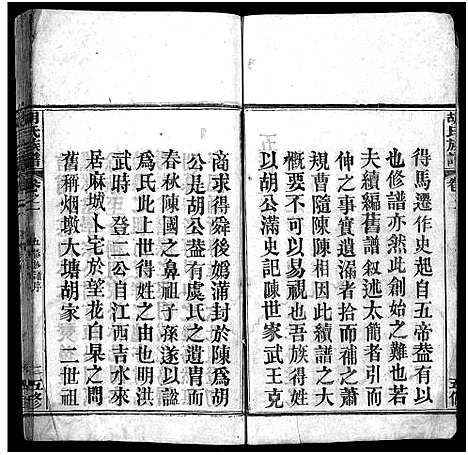 胡氏族譜 卷之一
得馬遷作史起自五帝葢有以
也修譜亦然此創始之難也若
夫續編舊譜叙述太簡者引而
伸之事實遺溺者拾而補之蕭
規曹隨陳陳相因此續譜之所
以爲不易易視也吾族得姓
以胡公滿史記陳世家武王克
商求得舜後媯滿封於陳爲胡
公是胡公葢有虞氏之遺胄而
春秋陳國之鼻祖子孫遂以諡
爲氏此上世得姓之由也明洪
武時 登二公自江西吉水來
居麻城卜宅於望花白杲之間
舊稱烟墩大塘胡家 二世祖
胡氏族譜 卷之一
五修
五修